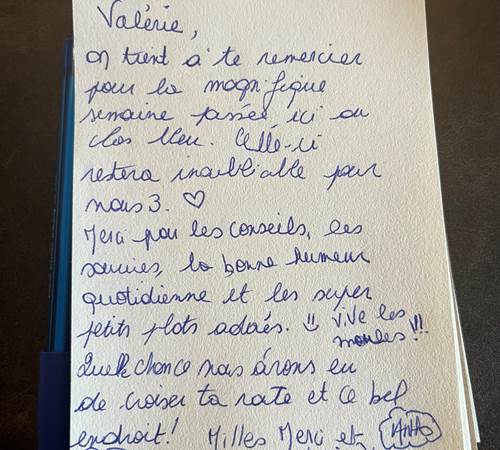 Valérie,
on tient à te remercier
pour la magnifique
semaine passée ici au
clos bleu. Celle-ci
restera inoubliable pour
nous 3. ♡
Merci pour les conseils, les
sourires, la bonne humeur
quotidienne et les super
petits plats adorés. Vive les
moules!!!
Quelle chance nous avons eu
de croiser ta route et ce bel
endroit! Milles Merci et